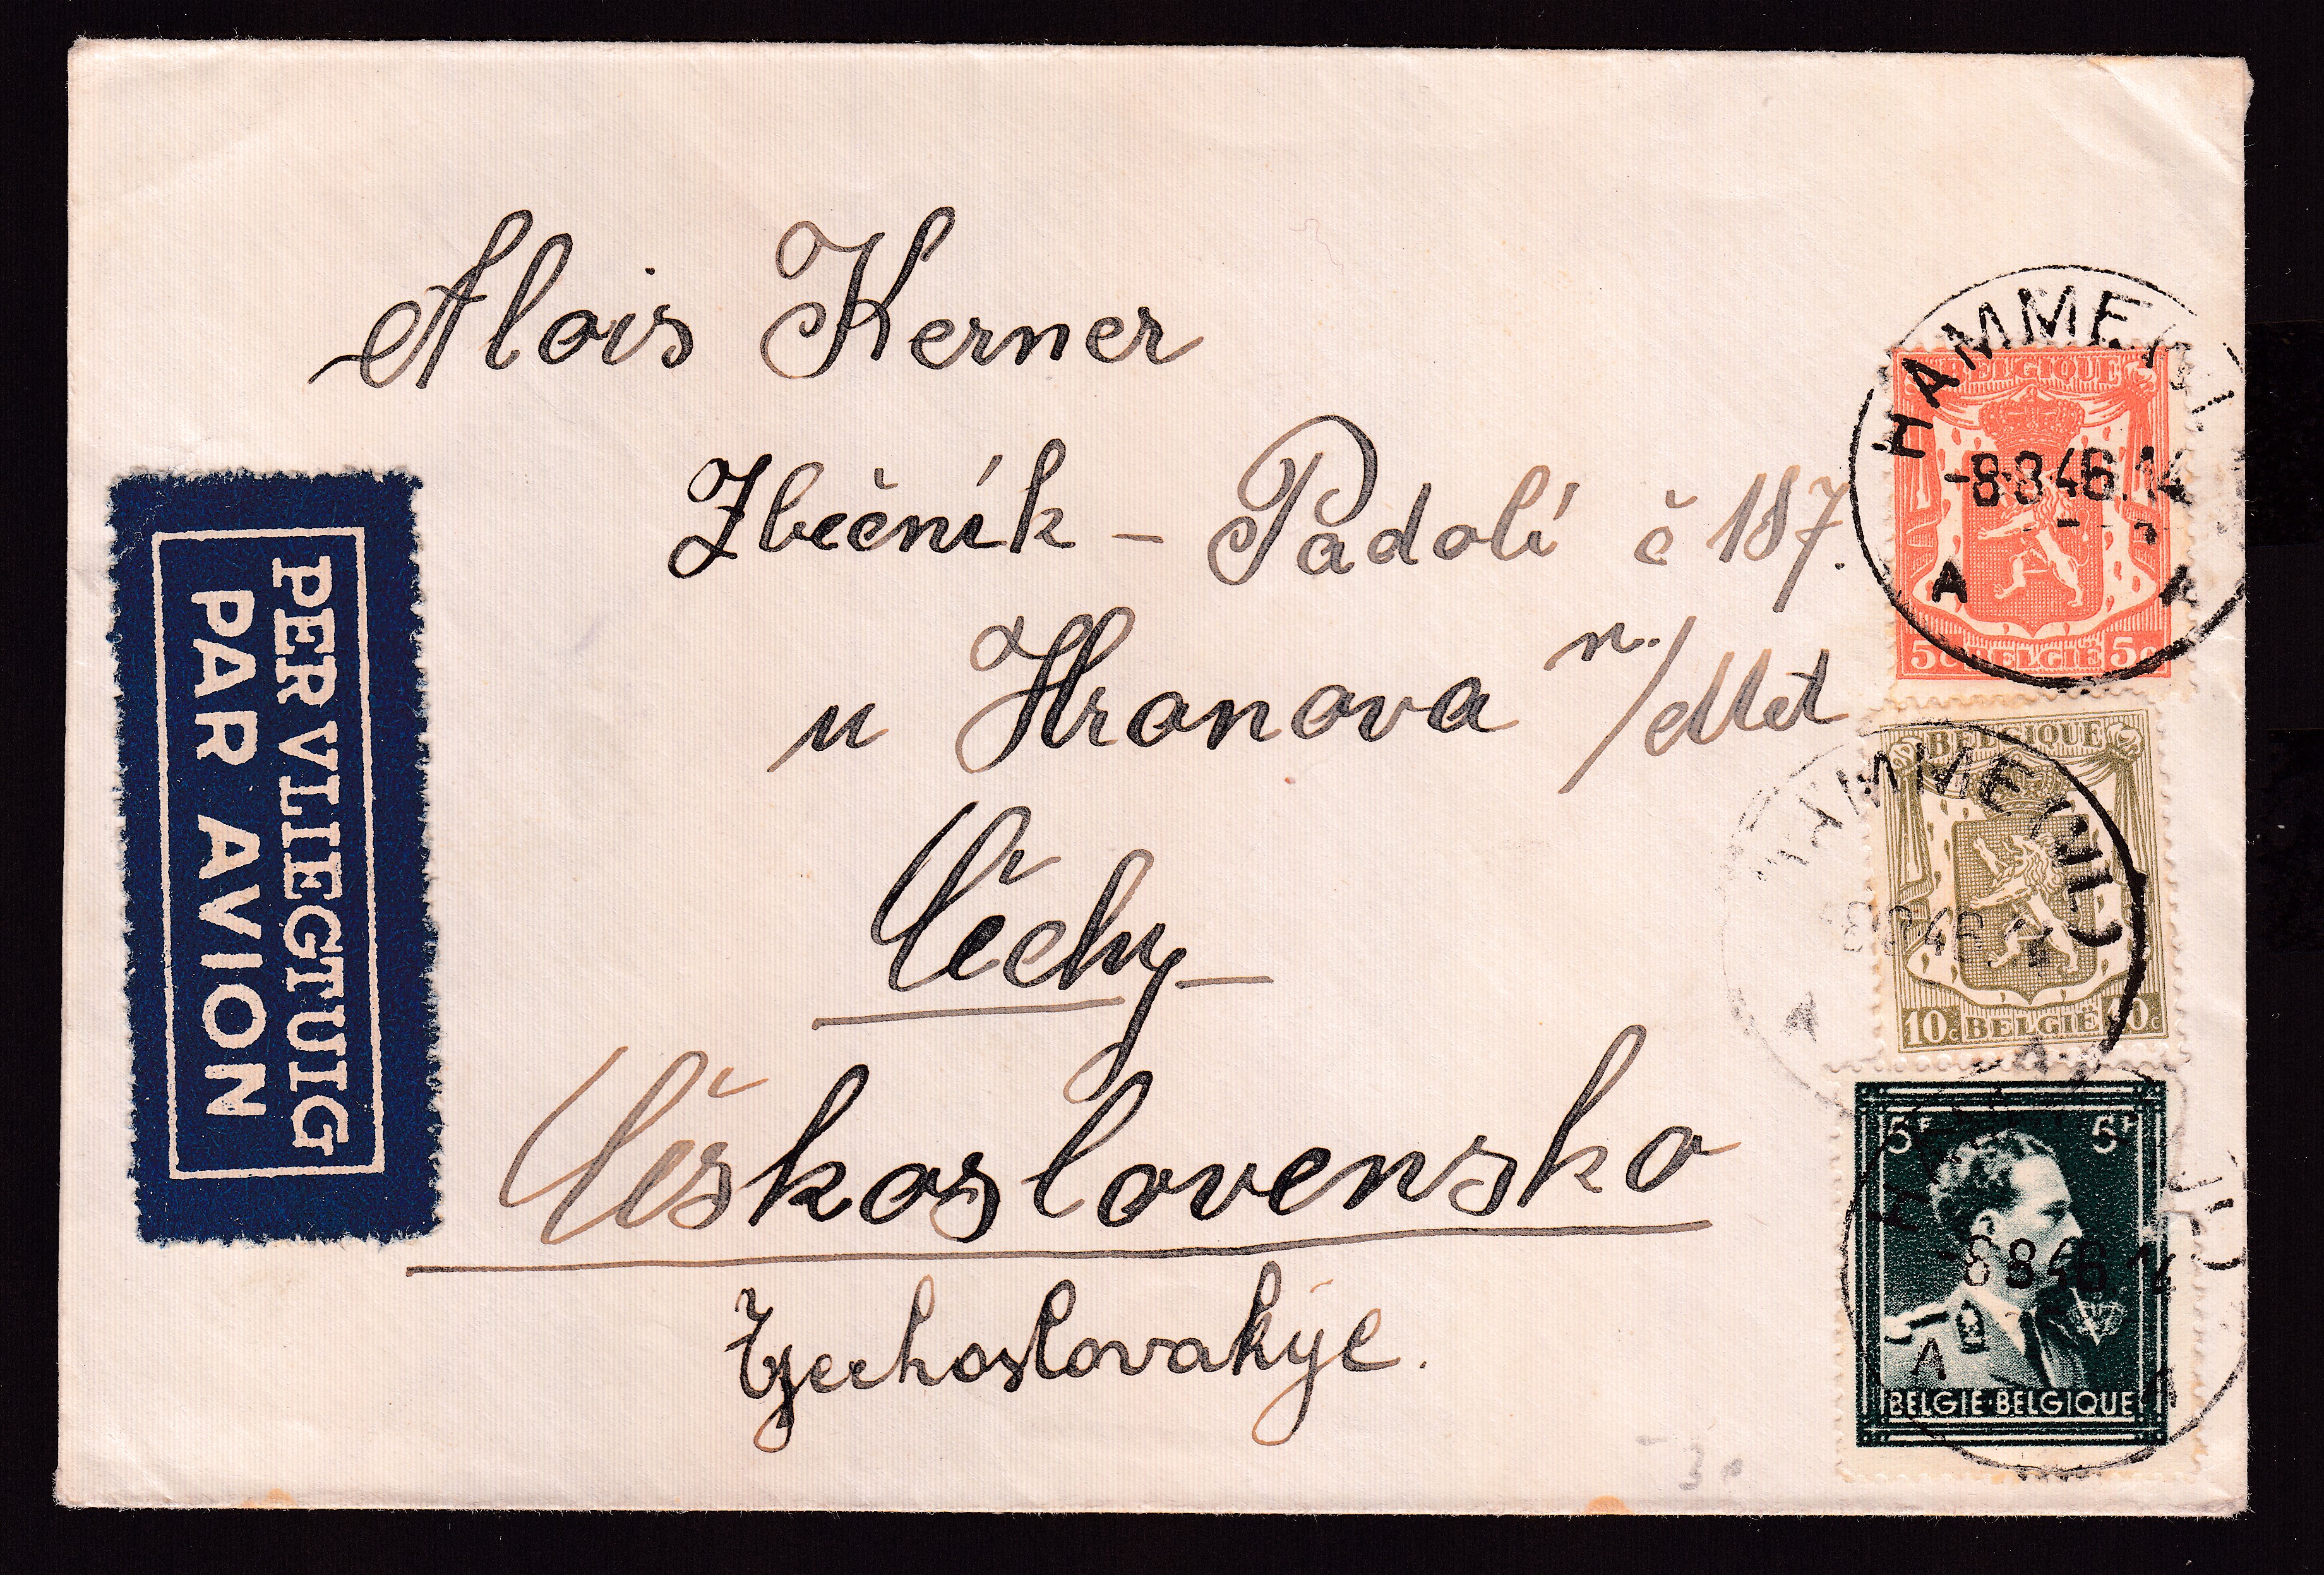 Alois Kerner
Zbečník - Padolí č 187.
u Hronova n./Met
Čechy
Československo
Tjechoslovakÿe.
PER VLIEGTUIG
PAR AVION
HAMME
BELGIQUE
-8-8 46.14
A A
5c BELGIË 5c
HAMME (NL)
BELGIQUE
8-8 46.14
A A
10c BELGIË 10c
5F 5F
-8 8 46 14
A A
BELGIË-BELGIQUE